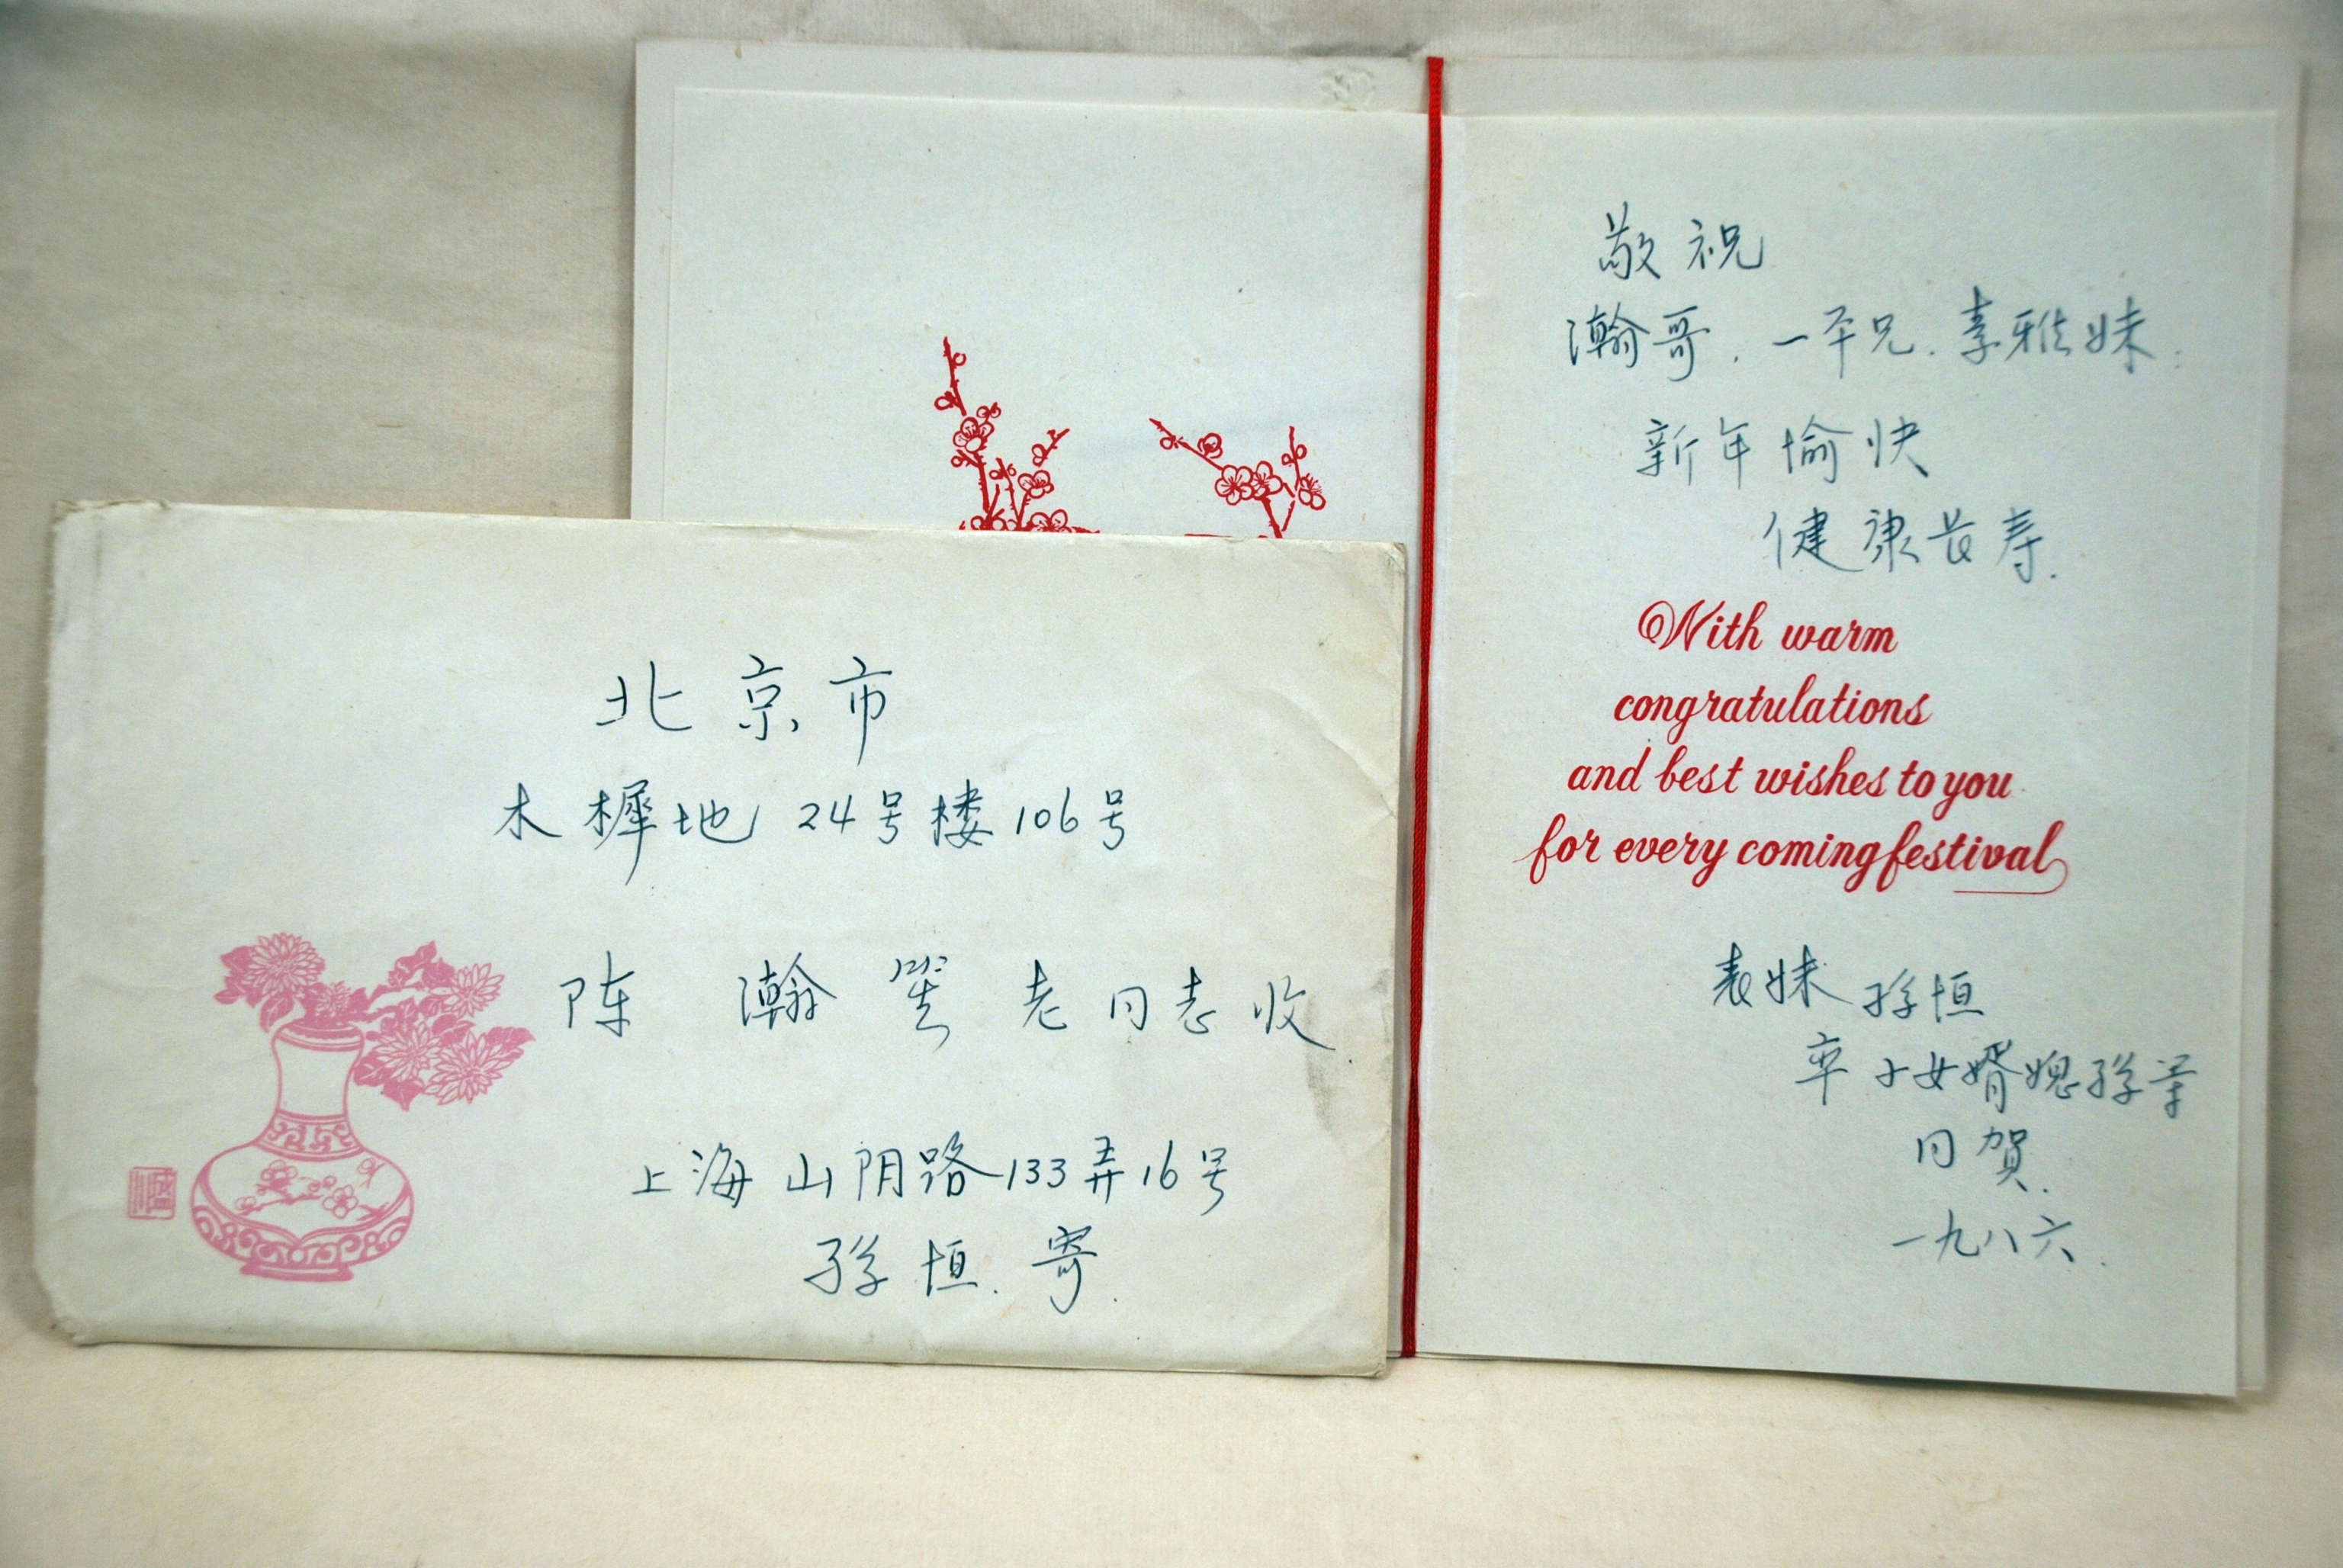 北京市
木樨地 24号楼106号
陈瀚笙老同志收
上海山阴路133弄16号
孙恒.寄.
敬祝
瀚哥.一平兄.素雅妹:
新年愉快
健康长寿.
With warm
congratulations
and best wishes to you
for every coming festival
表妹 孙恒
率子女婿媳孙等
同贺.
一九八六.